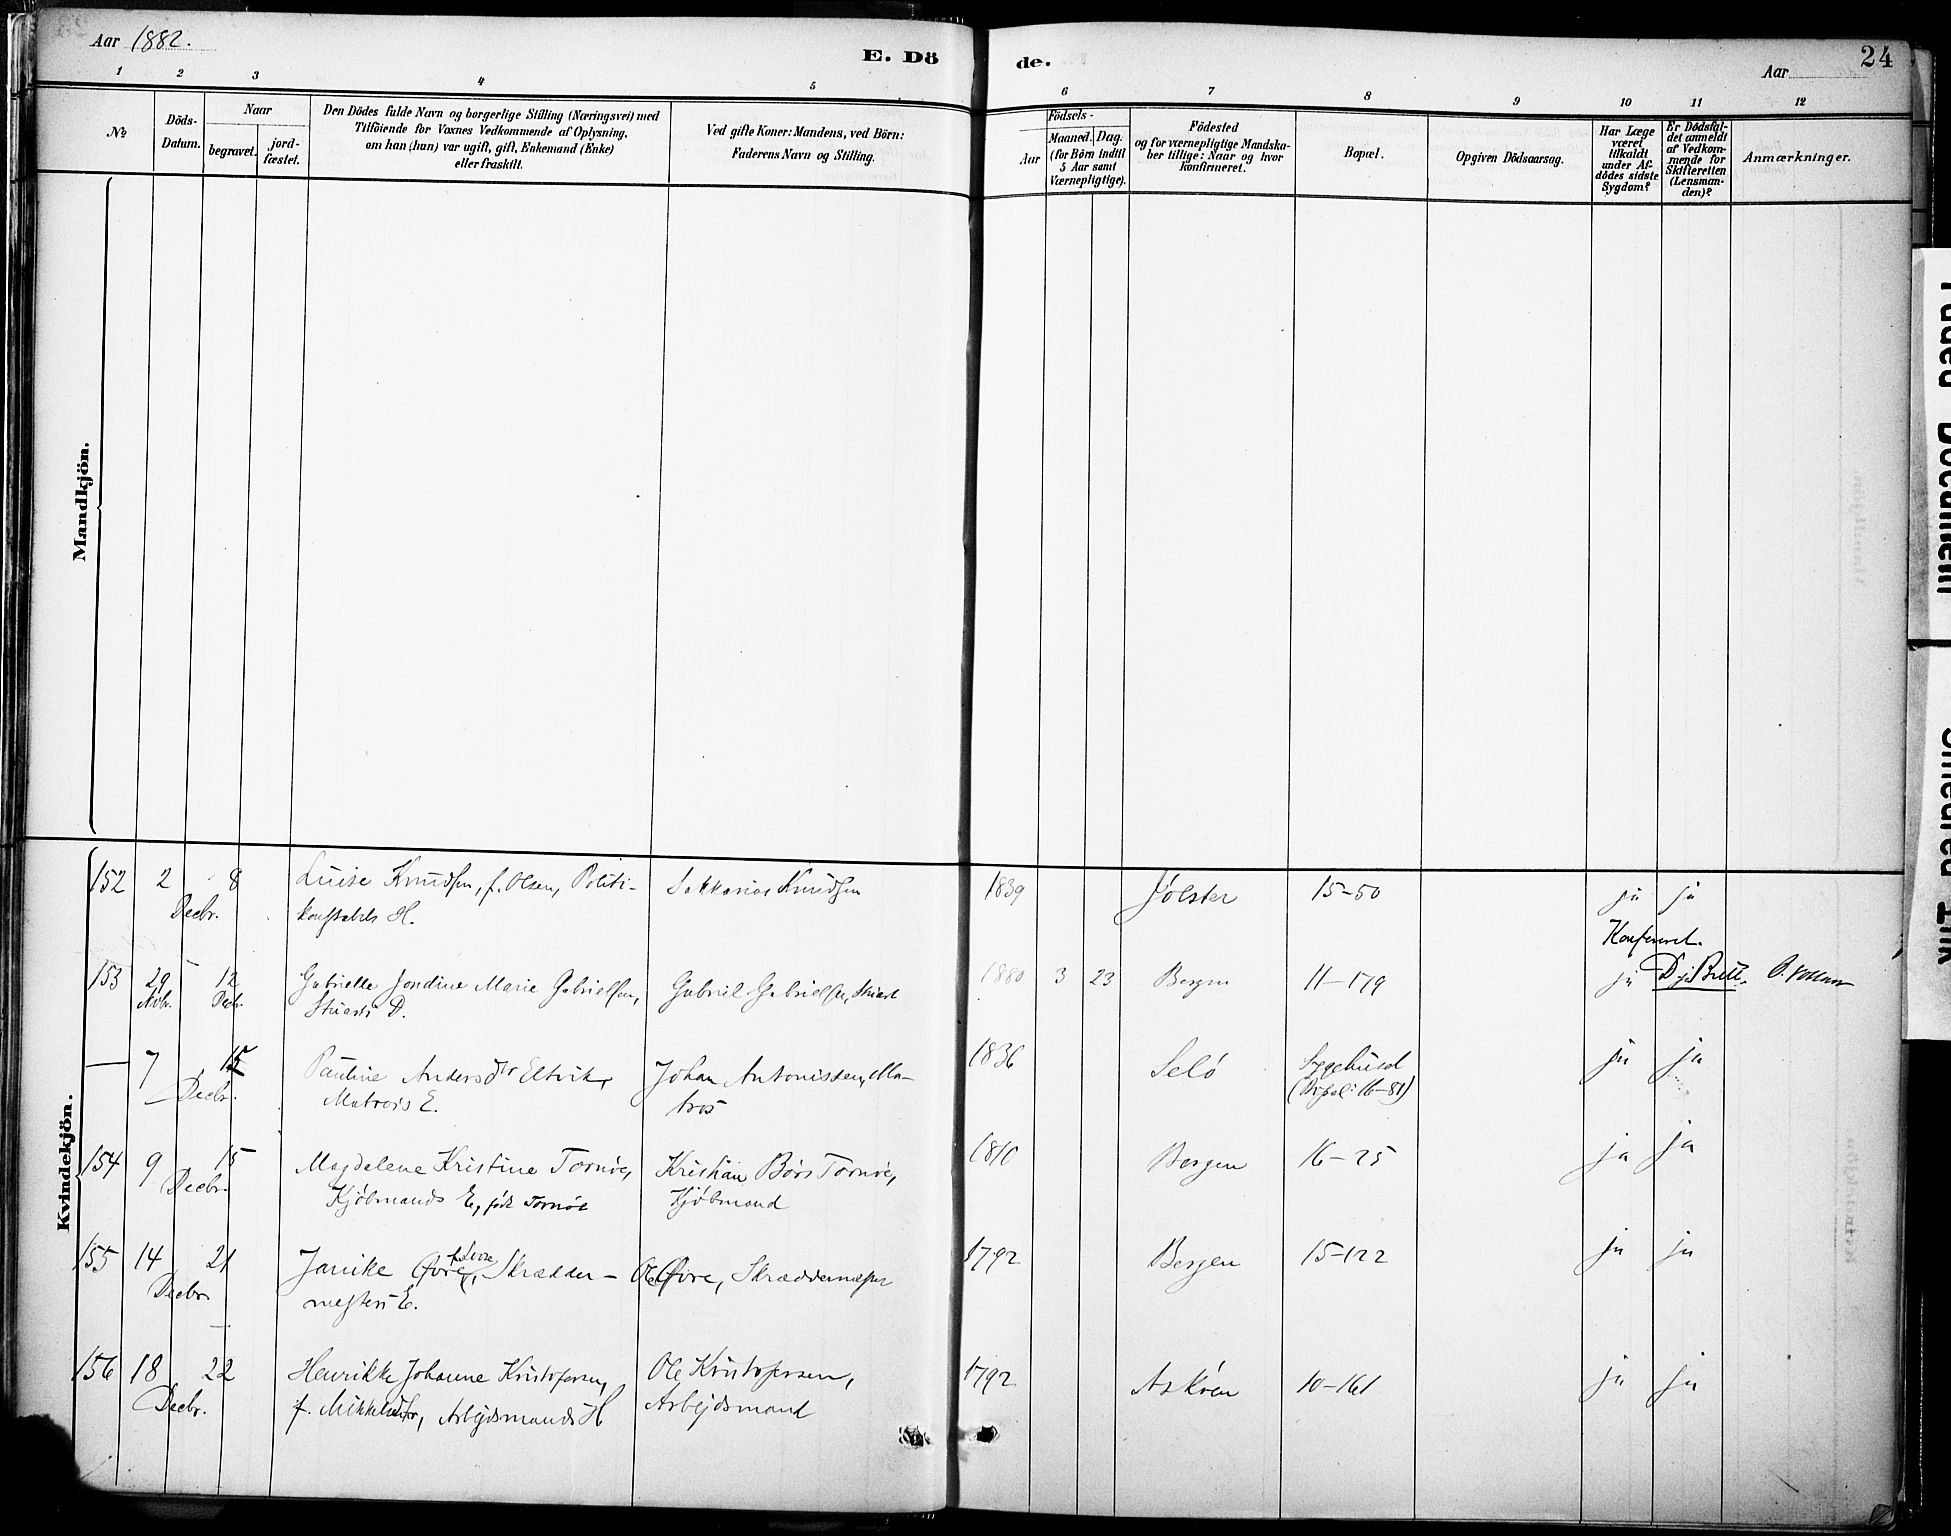 Aar 1882.
E. Döde.
Aar
24
1 2 3 4 5 6 7 8 9 10 11 12
№
Döds-Datum.
Naar
begravet.
jord-fæstet.
Den Dödes fulde Navn og borgerlige Stilling (Næringsvei) med
Tilföiende for Voxnes Vedkommende af Oplysning,
om han (hun) var ugift, gift, Enkemand (Enke)
eller fraskilt.
Ved gifte Koner: Mandens, ved Börn:
Faderens Navn og Stilling.
Födsels-
Aar
Maaned.
Dag.
(for Börn indtil
5 Aar samt
Værnepligtige).
Födested
og for værnepligtige Mandska-
ber tillige: Naar og hvor
konfirmeret.
Bopæl.
Opgiven Dödsaarsag.
Har Læge
været
tilkaldt
under Af-
dödes sidste
Sygdom?
Er Dödsfal-
det anmeldt
af Vedkom-
mende for
Skifteretten
(Lensman-
den)?
Anmærkninger.
Mandkjön.
Kvindekjön.
152 2 8 Luise Knudsen, f. Olsen, Politi- Sakkarias Knudsen 1839 Jølster 15-50 ja ja
Decbr. konstabels H.
153 29 12 Gabrielle Jondine Marie Gabrielsen, Gabriel Gabrielsen, Stuert 1880 3 23 Bergen 11-179 ja
Novbr. Decbr. Stuerts D.
— 7 15 Pauline Andersdtr Eltvik, Johan Antonissen, Ma- 1836 Selö Sygehuset ja ja
Decbr. Matros E. tros (Bopæl: 16-81)
154 9 15 Magdalene Kristine Tornöe, Kristian Börs Tornöe, 1810 Bergen 16-25 ja ja
Decbr. Kjöbmands E., født Tornöe Kjöbmand
155 14 21 Janike Övre, Skrædder- Ole Övre, Skræddermester 1792 Bergen 15-122 ja ja
Decbr. mesters E.
156 18 22 Henrikke Johanne Kristofersen, Ole Kristofersen, 1792 Askøen 10-161 ja ja
Decbr. f. Mikkelsdtr, Arbejdsmands H Arbejdsmand